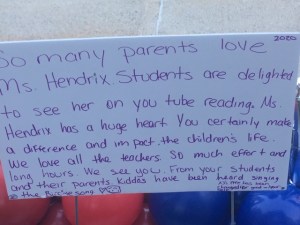 2020
So many parents love
Ms. Hendrix. Students are delighted
to see her on you tube reading. Ms.
Hendrix has a huge heart. You certainly make
a difference and impact the children's life.
We love all the teachers. So much effort and
long hours. We see you. From your students
and their parents. Kiddos have been heard singing
the song